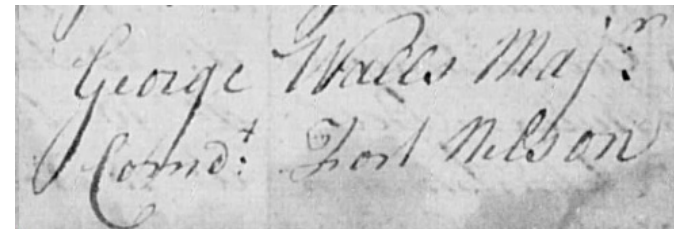 George Walls Majr.
Comdt. Fort Nelson